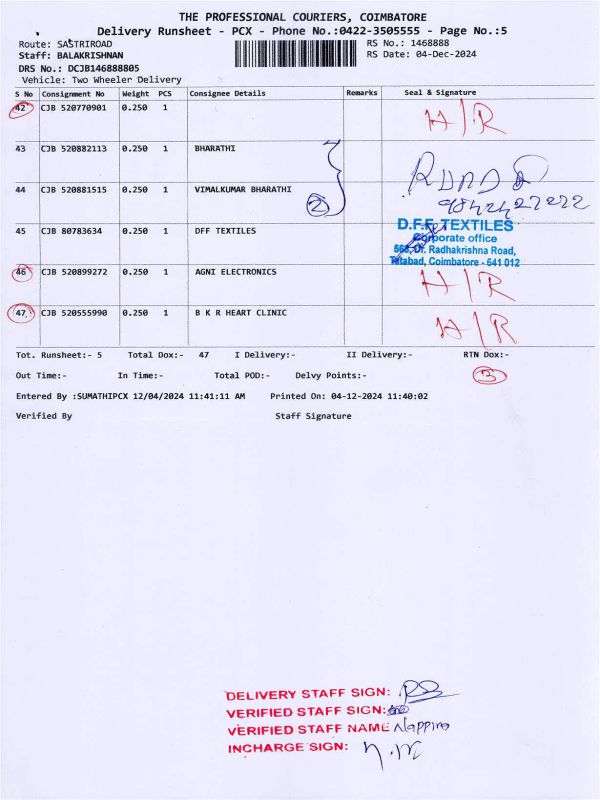 THE PROFESSIONAL COURIERS, COIMBATORE
Delivery Runsheet - PCX - Phone No.:0422-3505555 - Page No.:5
Route: SASTRIROAD RS No.: 1468888
Staff: BALAKRISHNAN RS Date: 04-Dec-2024
DRS No.: DCJB146888805
Vehicle: Two Wheeler Delivery
S No Consignment No Weight PCS Consignee Details Remarks Seal & Signature
42 CJB 520770901 0.250 1 H/R
43 CJB 520882113 0.250 1 BHARATHI
44 CJB 520881515 0.250 1 VIMALKUMAR BHARATHI 2
45 CJB 80783634 0.250 1 DFF TEXTILES D.F.F. TEXTILES
Corporate office
569, Dr. Radhakrishna Road,
Tatabad, Coimbatore - 641 012
46 CJB 520899272 0.250 1 AGNI ELECTRONICS H/R
47 CJB 520555990 0.250 1 B K R HEART CLINIC H/R
Tot. Runsheet:- 5 Total Dox:- 47 I Delivery:- II Delivery:- RTN Dox:-
Out Time:- In Time:- Total POD:- Delvy Points:- 3
Entered By :SUMATHIPCX 12/04/2024 11:41:11 AM Printed On: 04-12-2024 11:40:02
Verified By Staff Signature
DELIVERY STAFF SIGN:
VERIFIED STAFF SIGN:
VERIFIED STAFF NAME
INCHARGE SIGN: